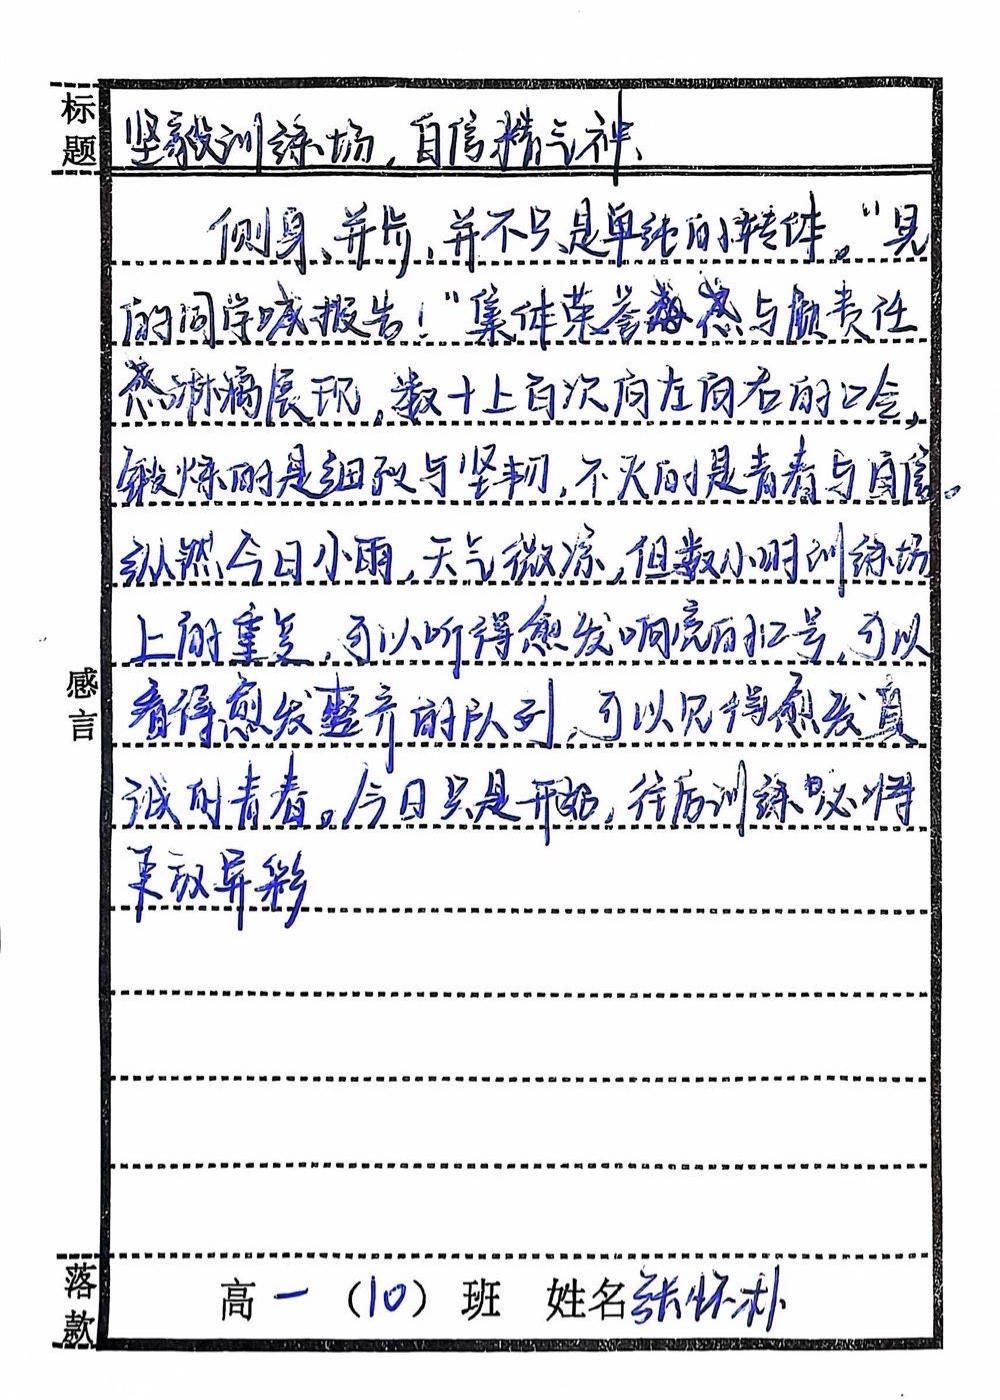 标题
坚毅训练场，自信精气神、
侧身、并步，并不只是单纯的转体。“见
的同学喊报告！”集体荣誉感与责任
感淋漓展现，数十上百次向左向右的口令，
锻炼的是细致与坚韧，不灭的是青春与自信。
纵然今日小雨，天气微凉，但数小时训练场
上的重复，可以听得愈发响亮的口号，可以
看得愈发整齐的队列，可以见得愈发真
诚的青春。今日只是开始，往后训练必将
更放异彩
感言
落款
高一（10）班 姓名张怀朴